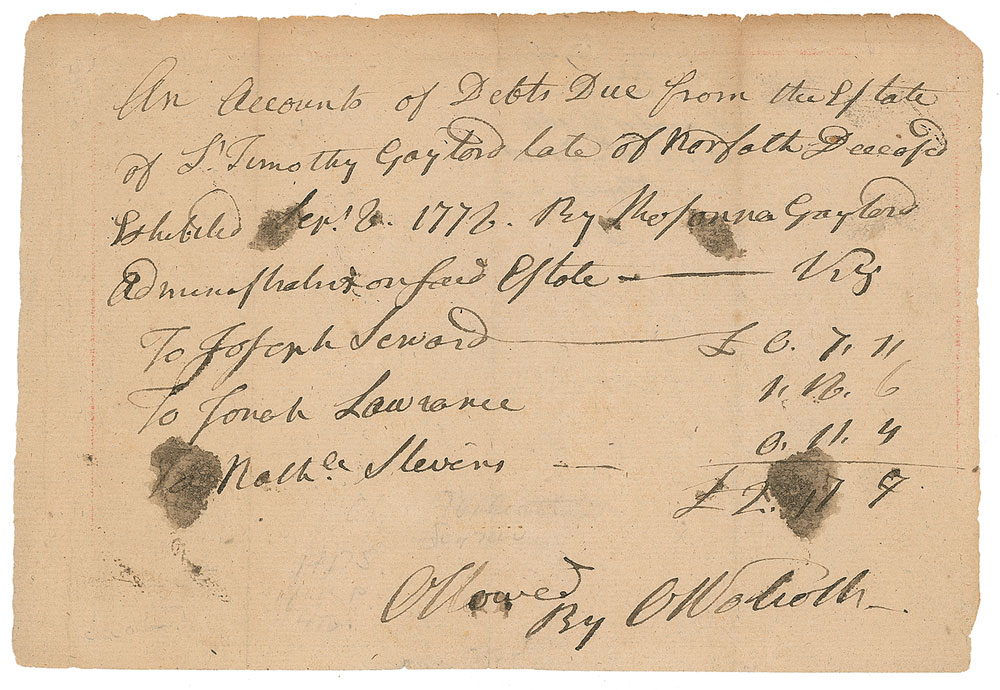 An Accounts of Debts Due from the Estate
of Lt Timothy Gaylord late of Norfolk Deceasd
Exhibited Sepr 8. 1778. By Rhosanna Gaylord
Administratrix on said Estate — Viz
To Joseph Seward — £ 0. 7. 11
To Jonah Lawrance 1. 18. 6
To Nathll Stevens — 0. 11. 4
£ 2. 17 9
Allowed By O Wolcott